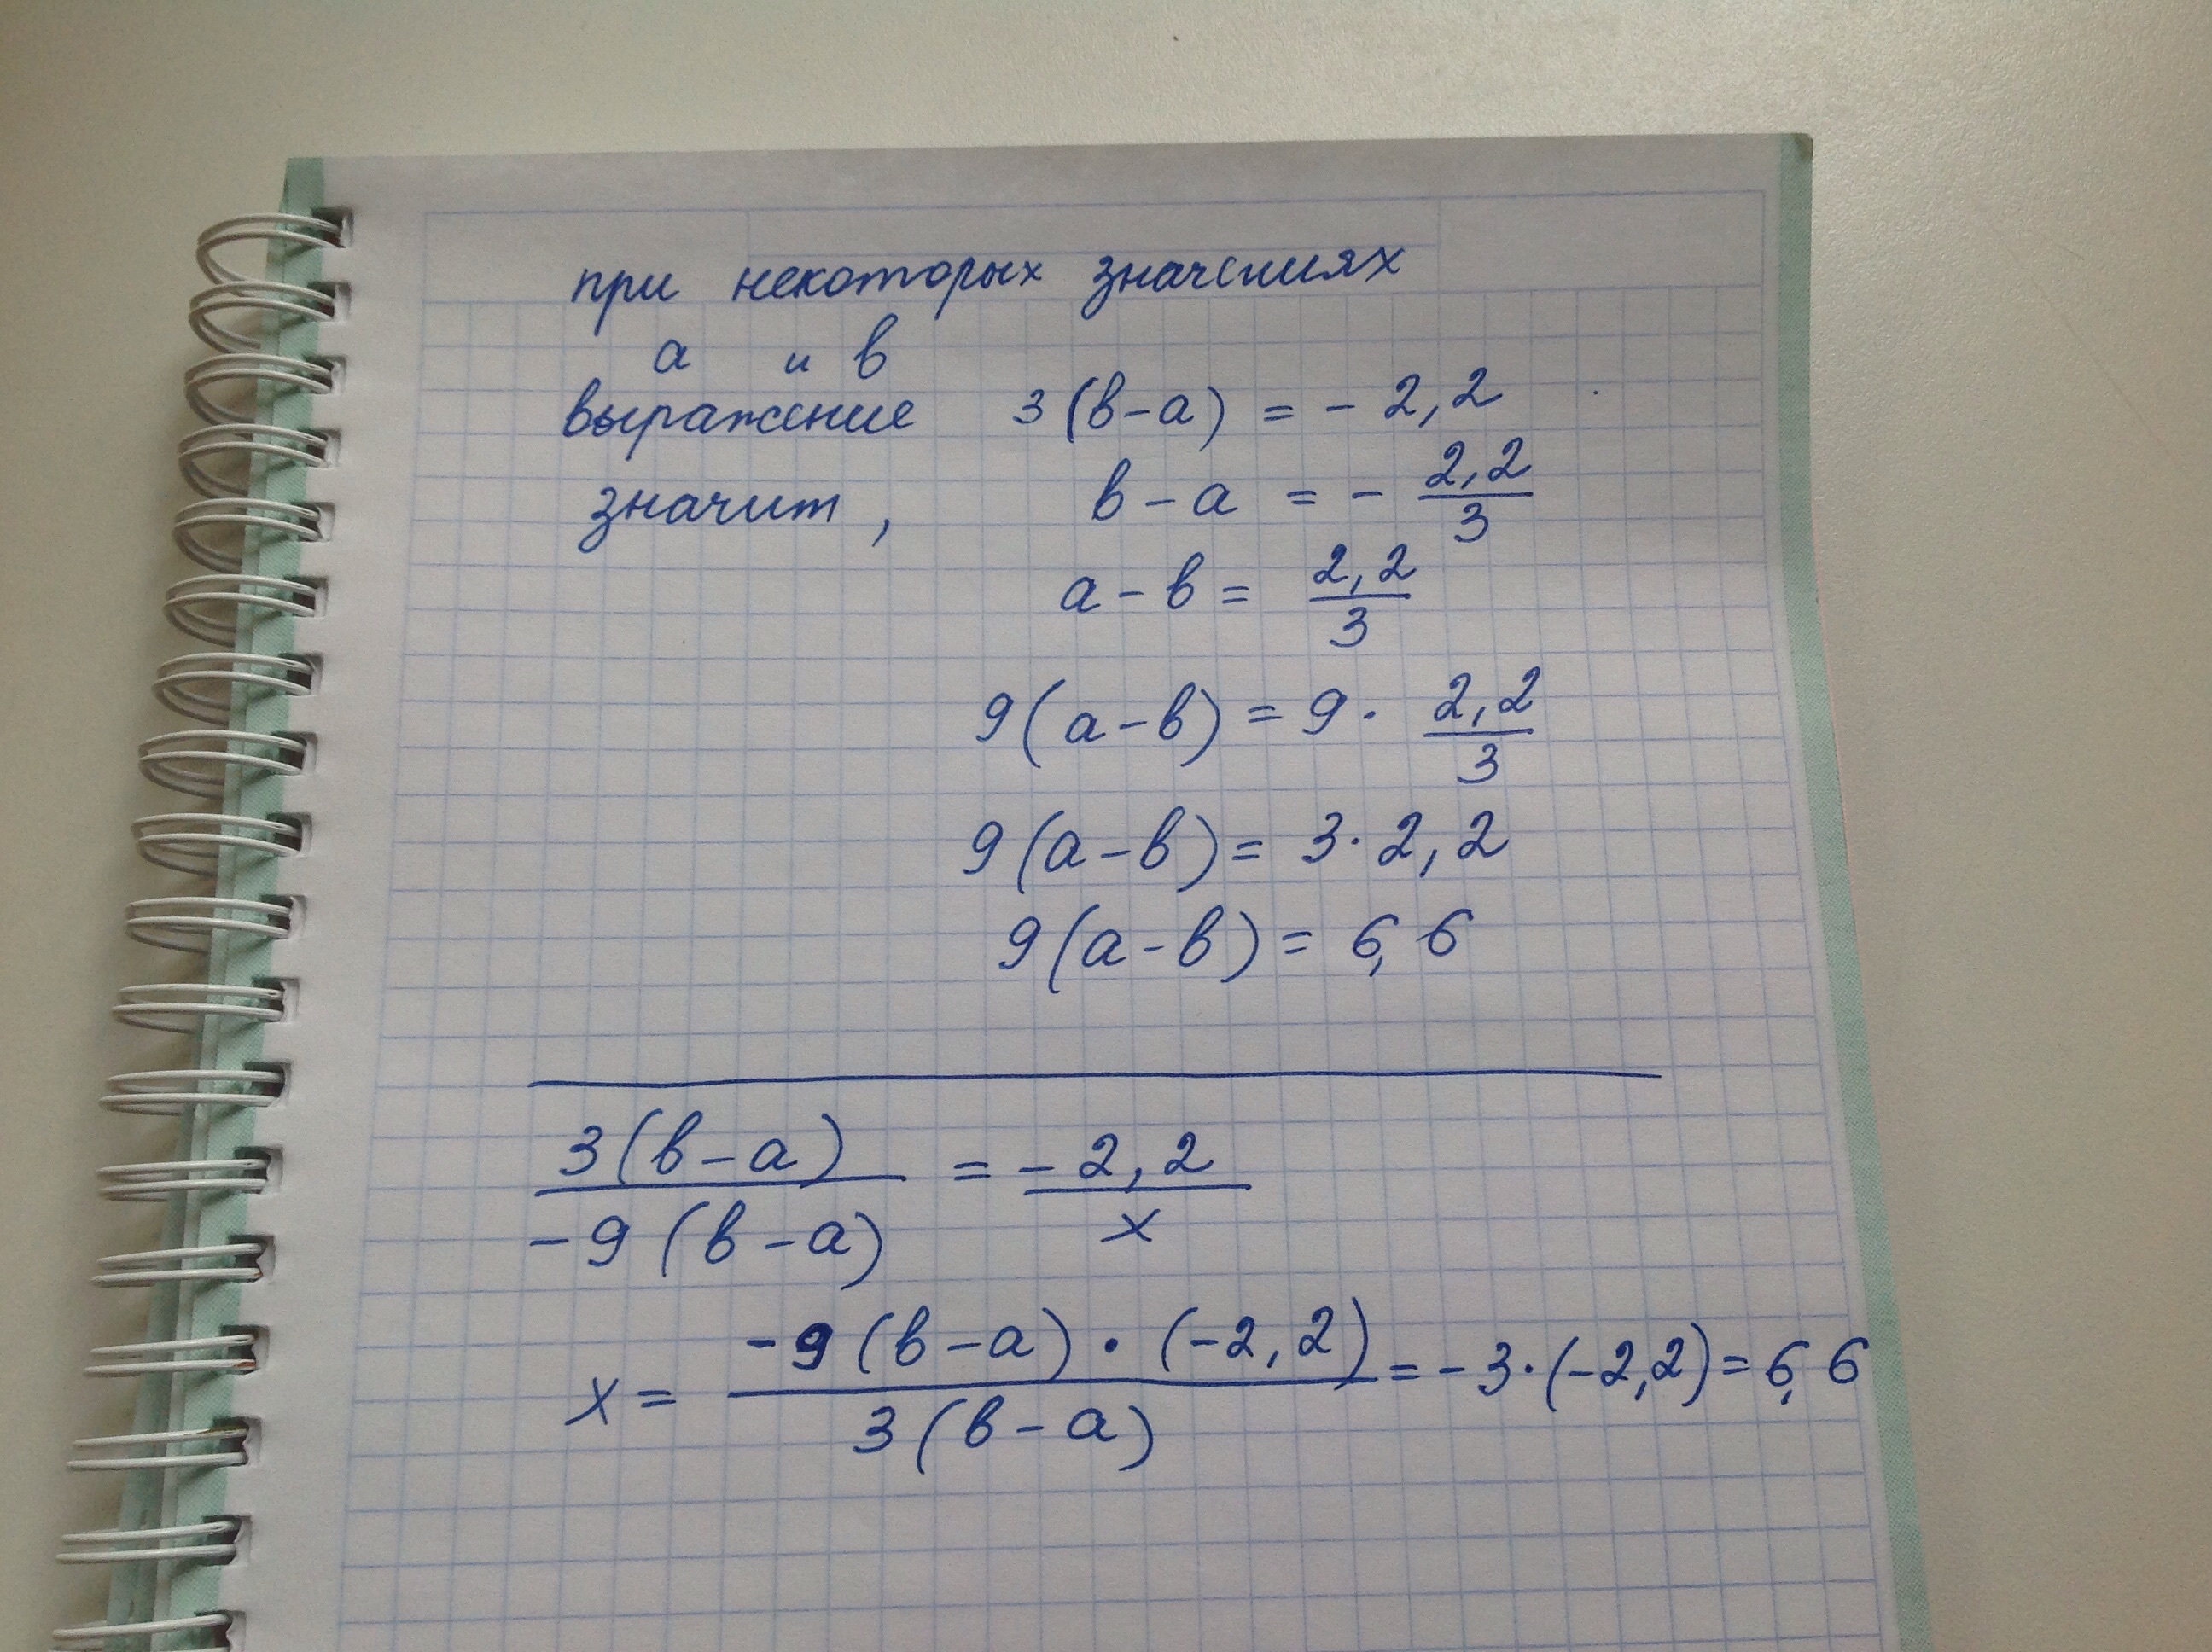 при некоторых значениях
а и в
выражение 3(в-а) = - 2,2
значит, в - а = - 2,2/3
а - в = 2,2/3
9(а-в) = 9 · 2,2/3
9(а-в) = 3 · 2,2
9(а-в) = 6,6
3(в-а)/-9(в-а) = -2,2/х
х = -9(в-а) · (-2,2)/3(в-а) = -3·(-2,2) = 6,6